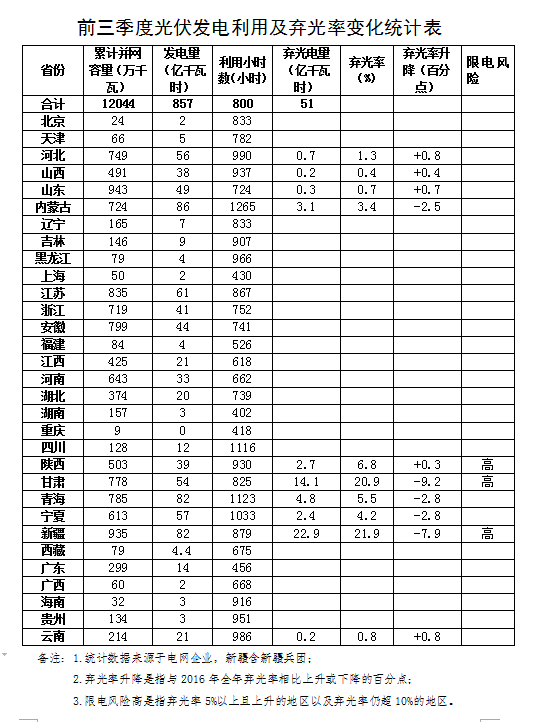 前三季度光伏发电利用及弃光率变化统计表
省份 累计并网容量（万千瓦） 发电量（亿千瓦时） 利用小时数（小时） 弃光电量（亿千瓦时） 弃光率（%） 弃光率升降（百分点） 限电风险
合计 12044 857 800 51
北京 24 2 833
天津 66 5 782
河北 749 56 990 0.7 1.3 +0.8
山西 491 38 937 0.2 0.4 +0.4
山东 943 49 724 0.3 0.7 +0.7
内蒙古 724 86 1265 3.1 3.4 -2.5
辽宁 165 7 833
吉林 146 9 907
黑龙江 79 4 966
上海 50 2 430
江苏 835 61 867
浙江 719 41 752
安徽 799 44 741
福建 84 4 526
江西 425 21 618
河南 643 33 662
湖北 374 20 739
湖南 157 3 402
重庆 9 0 418
四川 128 12 1116
陕西 503 39 930 2.7 6.8 +0.3 高
甘肃 778 54 825 14.1 20.9 -9.2 高
青海 785 82 1123 4.8 5.5 -2.8
宁夏 613 57 1033 2.4 4.2 -2.8
新疆 935 82 879 22.9 21.9 -7.9 高
西藏 79 4.4 675
广东 299 14 456
广西 60 2 668
海南 32 3 916
贵州 134 3 951
云南 214 21 986 0.2 0.8 +0.8
备注：1.统计数据来源于电网企业，新疆含新疆兵团；
2.弃光率升降是指与2016年全年弃光率相比上升或下降的百分点；
3.限电风险高是指弃光率5%以上且上升的地区以及弃光率仍超10%的地区。